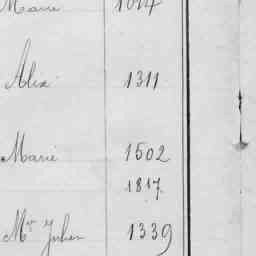 Marie 1014
Alix 1311
Marie 1502
1817.
Mr Julien 1339